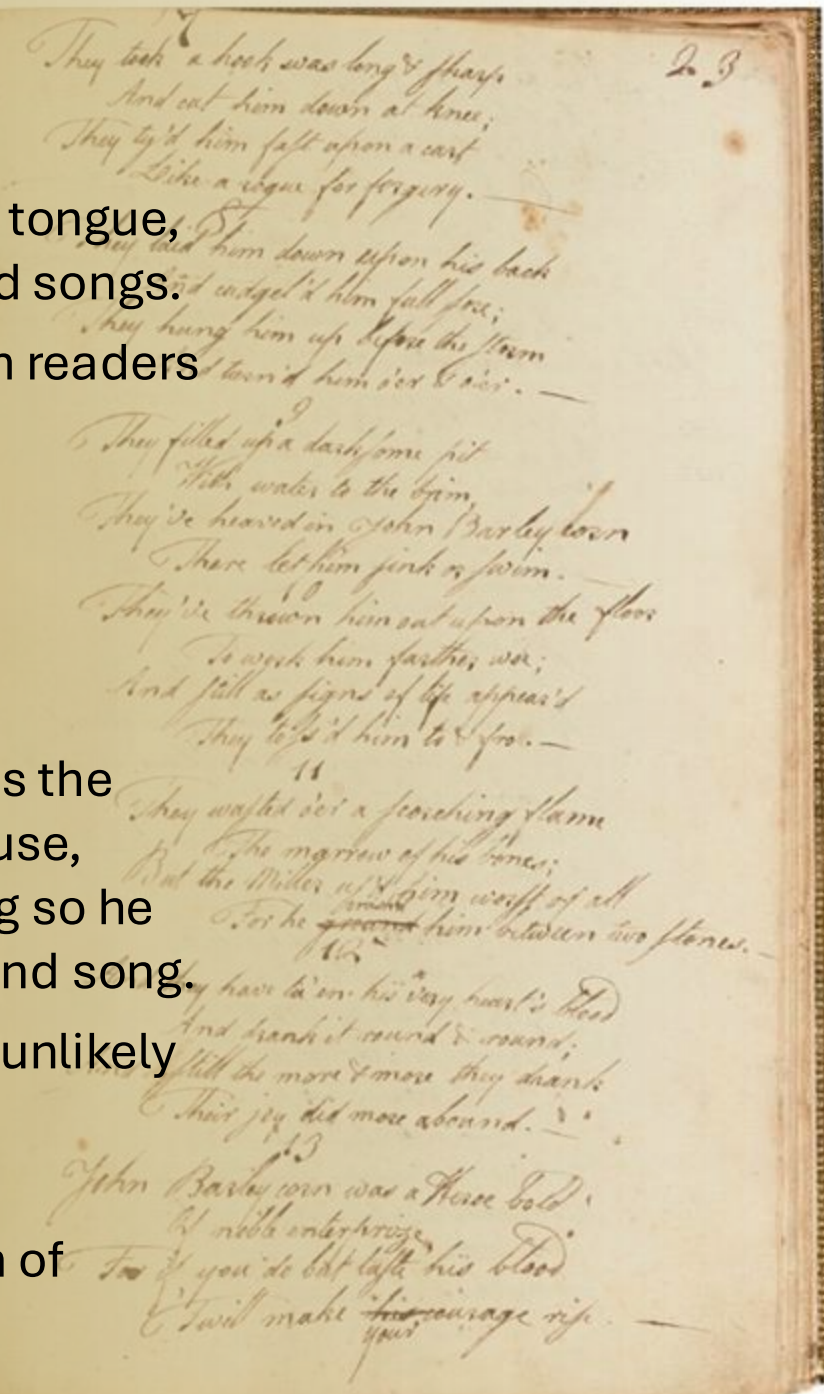 7
23
They took a hook was long & sharp
And cut him down at knee;
They ty'd him fast upon a cart
Like a rogue for forgery. —
tongue,
8
They laid him down upon his back
d songs.
And cudgel'd him full sore;
They hung him up before the storm
n readers
turn'd him o'er & o'er. —
9
They filled up a darksome pit
With water to the brim,
They've heaved in John Barleycorn
There let him sink or swim. —
10
They've thrown him out upon the floor
To work him farther woe;
And still as signs of life appear'd
They toss'd him to & fro. —
11
s the
They wasted o'er a scorching flame
The marrow of his bones;
use,
But the Miller us'd him worst of all
g so he
For he him between two stones. —
12
nd song.
they have ta'en his very heart's blood
And drank it round & round;
unlikely
And still the more & more they drank
Their joy did more abound. —
13
John Barleycorn was a Heroe bold
Of noble enterprize,
n of
For if you do but taste his blood
'Twill make his courage rise. —
your